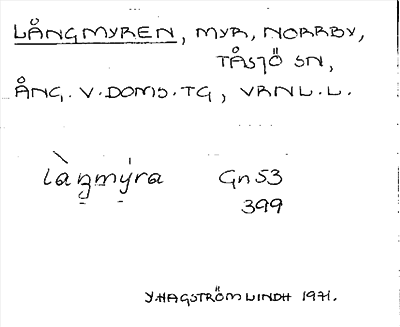 LÅNGMYREN, MYR, NORRBY,
TÅSJÖ SN,
ÅNG. V. DOMS. TG, VRNL. L.
làŋmýra Gn53
399
Y. HAGSTRÖM LINDH 1971.